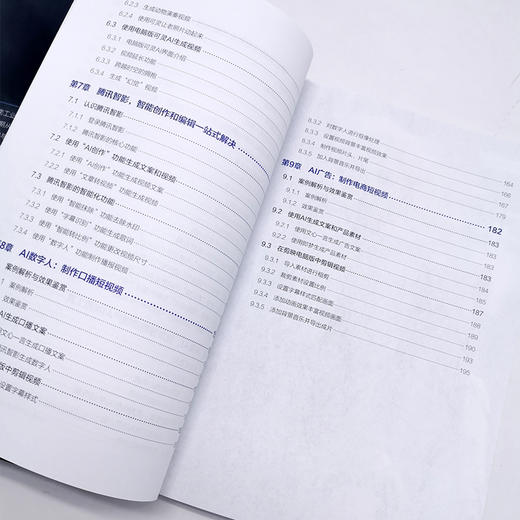 6.2.3 生成动物演奏视频
6.2.4 使用可灵让老照片动起来
6.3 使用电脑版可灵AI生成视频
6.3.1 电脑版可灵AI界面介绍
6.3.2 视频延长功能
6.3.3 跨越时空的拥抱
6.3.4 生成“幻觉”视频
第7章 腾讯智影，智能创作和编辑一站式解决
7.1 认识腾讯智影
7.1.1 登录腾讯智影
7.1.2 腾讯智影的核心功能
7.2 使用“AI创作”功能生成文案和视频
7.2.1 使用“AI创作”功能生成视频文案
7.2.2 使用“文章转视频”功能生成视频
7.3 腾讯智影的智能化功能
7.3.1 使用“智能抹除”功能去除水印
7.3.2 使用“字幕识别”功能生成歌词
7.3.3 使用“智能转比例”功能更改视频尺寸
7.3.4 使用“数字人”功能制作播报视频
8章 AI数字人：制作口播短视频
案例解析与效果鉴赏
案例解析
效果鉴赏
AI生成口播文案
文心一言生成口播文案
讯智影生成数字人
版中剪辑视频
设置字幕样式
8.3.2 对数字人进行抠像处理 164
8.3.3 设置视频背景丰富视频效果 166
8.3.4 制作视频片头、片尾 167
8.3.5 加入背景音乐并导出 179
第9章 AI广告：制作电商短视频 182
9.1 案例解析与效果鉴赏 183
9.1.1 案例解析 183
9.1.2 效果鉴赏 183
9.2 使用AI生成文案和产品素材 183
9.2.1 使用文心一言生成广告文案 183
9.2.2 使用即梦生成产品素材 185
9.3 在剪映电脑版中剪辑视频 187
9.3.1 导入素材进行粗剪 187
9.3.2 裁剪素材设置比例 188
9.3.3 设置字幕样式匹配画面 190
9.3.4 添加动画效果丰富视频画面 193
9.3.5 添加背景音乐并导出成片 195